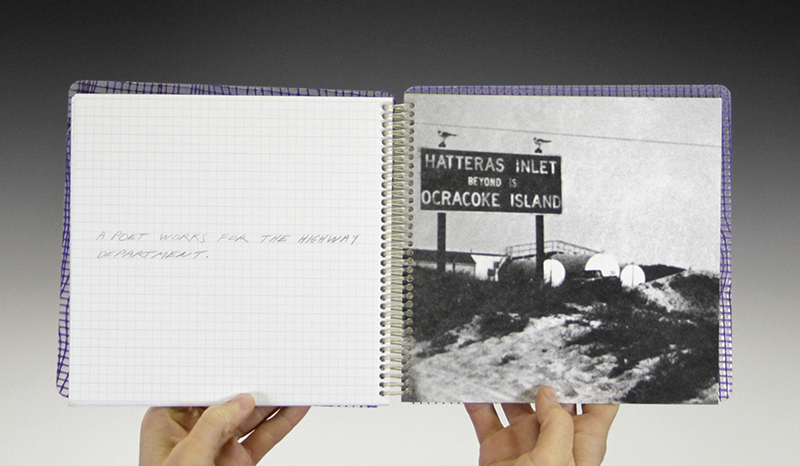 A POET WORKS FOR THE HIGHWAY
DEPARTMENT.
HATTERAS INLET
BEYOND IS
OCRACOKE ISLAND